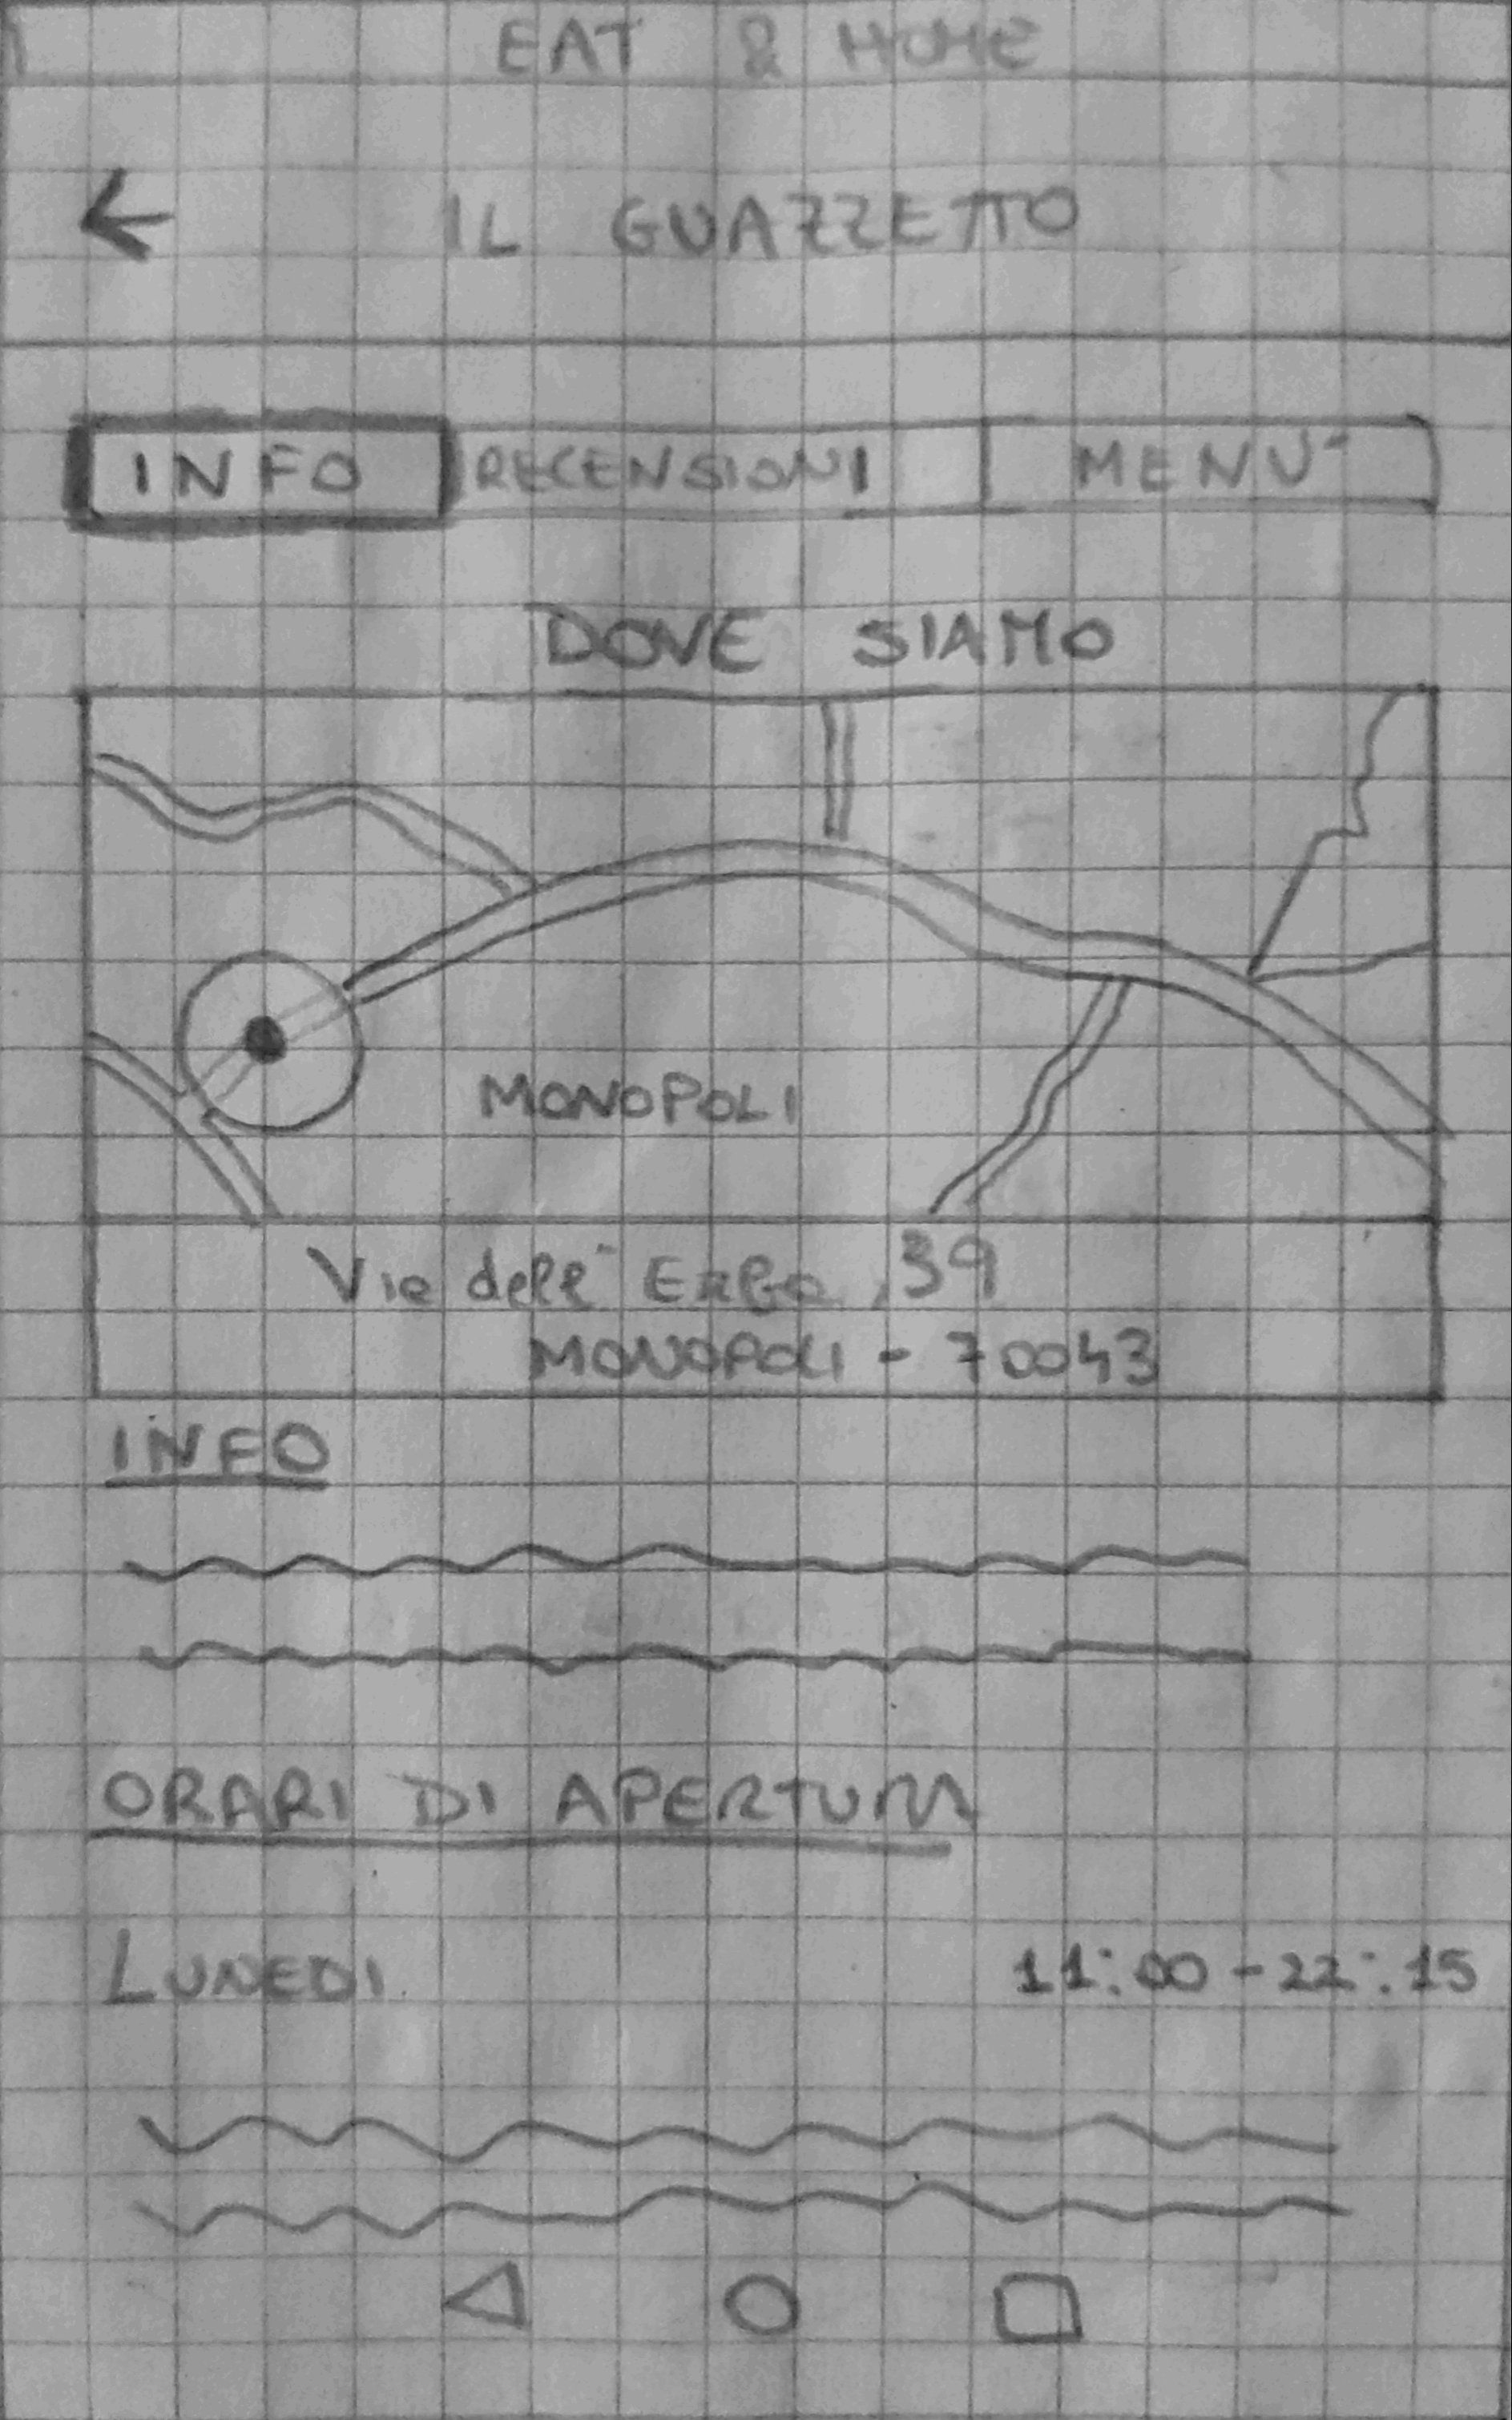 EAT & HOME
IL GUAZZETTO
INFO RECENSIONI MENU'
DOVE SIAMO
MONOPOLI
Via dell' Erba, 39
MONOPOLI - 70043
INFO
ORARI DI APERTURA
LUNEDI 11:00 - 22:15